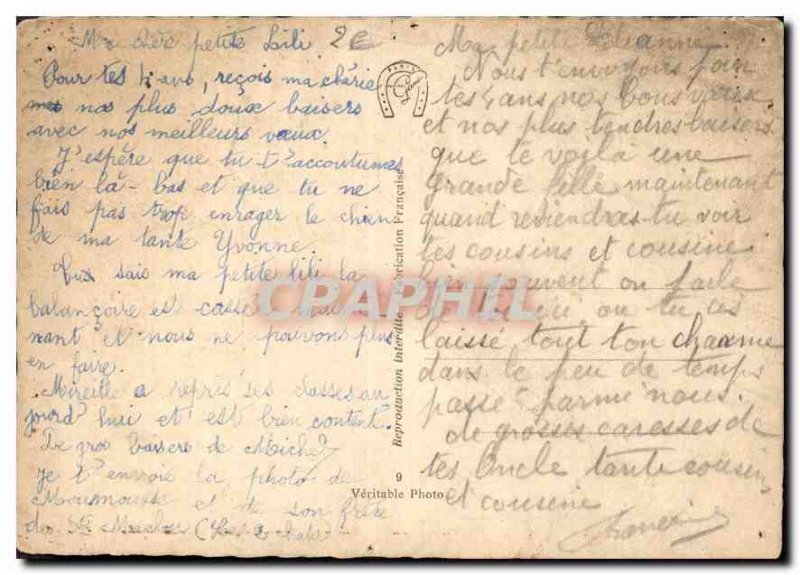 Ma petite Lili 2€
Pour tes 4 ans, reçois ma chérie
nos plus doux baisers
avec nos meilleurs vœux.
J'espère que tu t'accoutumes
bien là-bas et que tu ne
fais pas trop enrager le chien
de ma tante Yvonne.
Tu sais ma petite lili la
balançoire est cassée
nant et nous ne pouvons plus
en faire.
Mireille a repris ses classes au
jourd'hui et est bien contente.
De gros baisers de Michel
Je t'envoie la photo de
Moumousse et de son frère
de (Les 2 chats)
PARIS
Reproduction interdite - Fabrication Française
9
Véritable Photo
CPAPHIL
Ma petite Lilianne
Nous t'envoyons pour
tes 4 ans nos bons vœux
et nos plus tendres baisers
que te voilà une
grande fille maintenant
quand reviendras-tu voir
tes cousins et cousine
bien souvent on parle
de toi ou tu as
laissé tout ton charme
dans le peu de temps
passé parmi nous.
de grosses caresses de
tes Oncle tante cousin
et cousine